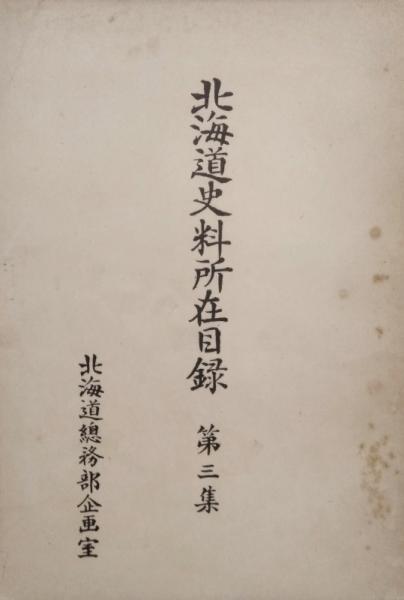 北海道史料所在目録 第三集
北海道總務部企画室